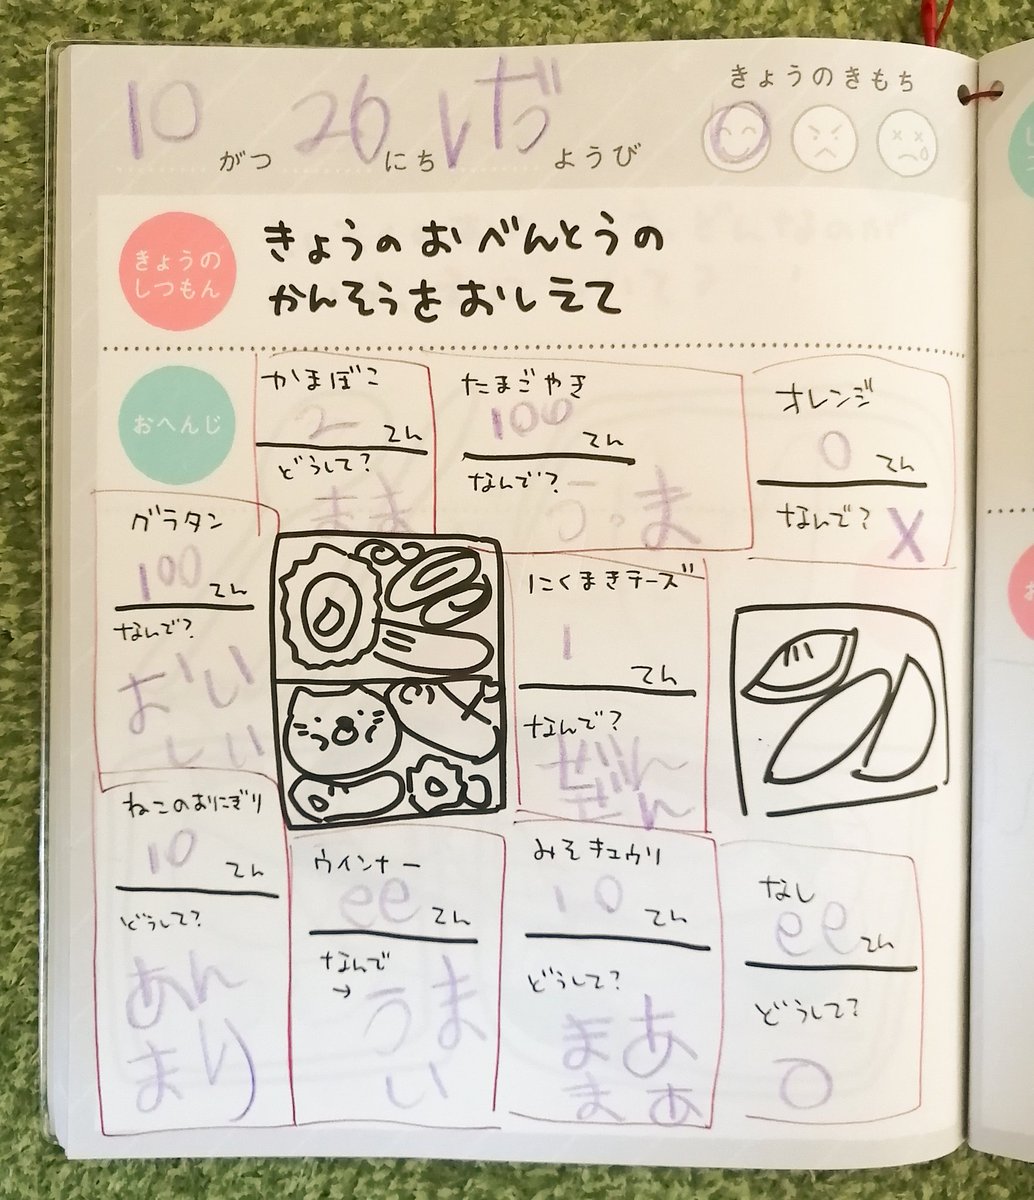 きょうのきもち
10がつ26にちげつようび
きょうの
しつもん
きょうのおべんとうの
かんそうをおしえて
おへんじ
かまぼこ
2てん
どうして?
まま
たまごやき
100てん
なんで?
うっま
オレンジ
0てん
なんで?
X
グラタン
100てん
なんで?
おいしい
にくまきチーズ
1
てん
なんで?
ぜんぜん
ねこのおにぎり
10
てん
どうして?
あん
まり
ウインナー
てん
なんで
→
うまい
みそキュウリ
10
てん
どうして?
まあ
まあ
なし
てん
どうして?
○